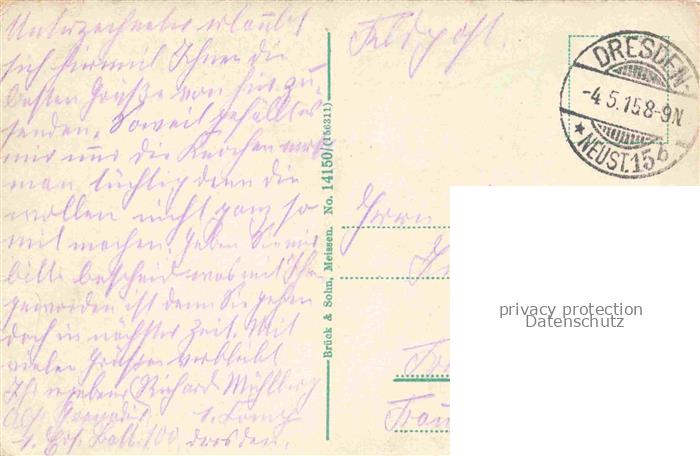 Unterzeichneter erlaubt
sich hiermit Ihnen die
besten Grüße von hier zu
senden. Soweit gefällt es
mir und die Knochen merkt
man tüchtig denn die
wollen nicht ganz so
mit machen. Geben Sie mir
bitte bescheid was mit
geworden ist denn Sie
doch in nächster Zeit. Mit
vielen Grüßen verbleibt
Ihr ergebener Richard Mühlberg
1. Comp.
1. Ers. Batl. 100, Dresden.
Brück & Sohn, Meissen. No. 14150/(Th6311)
Feldpost.
DRESDEN-
-4.5.15 8-9N
* NEUST. 15 b
Herrn
privacy protection
Datenschutz